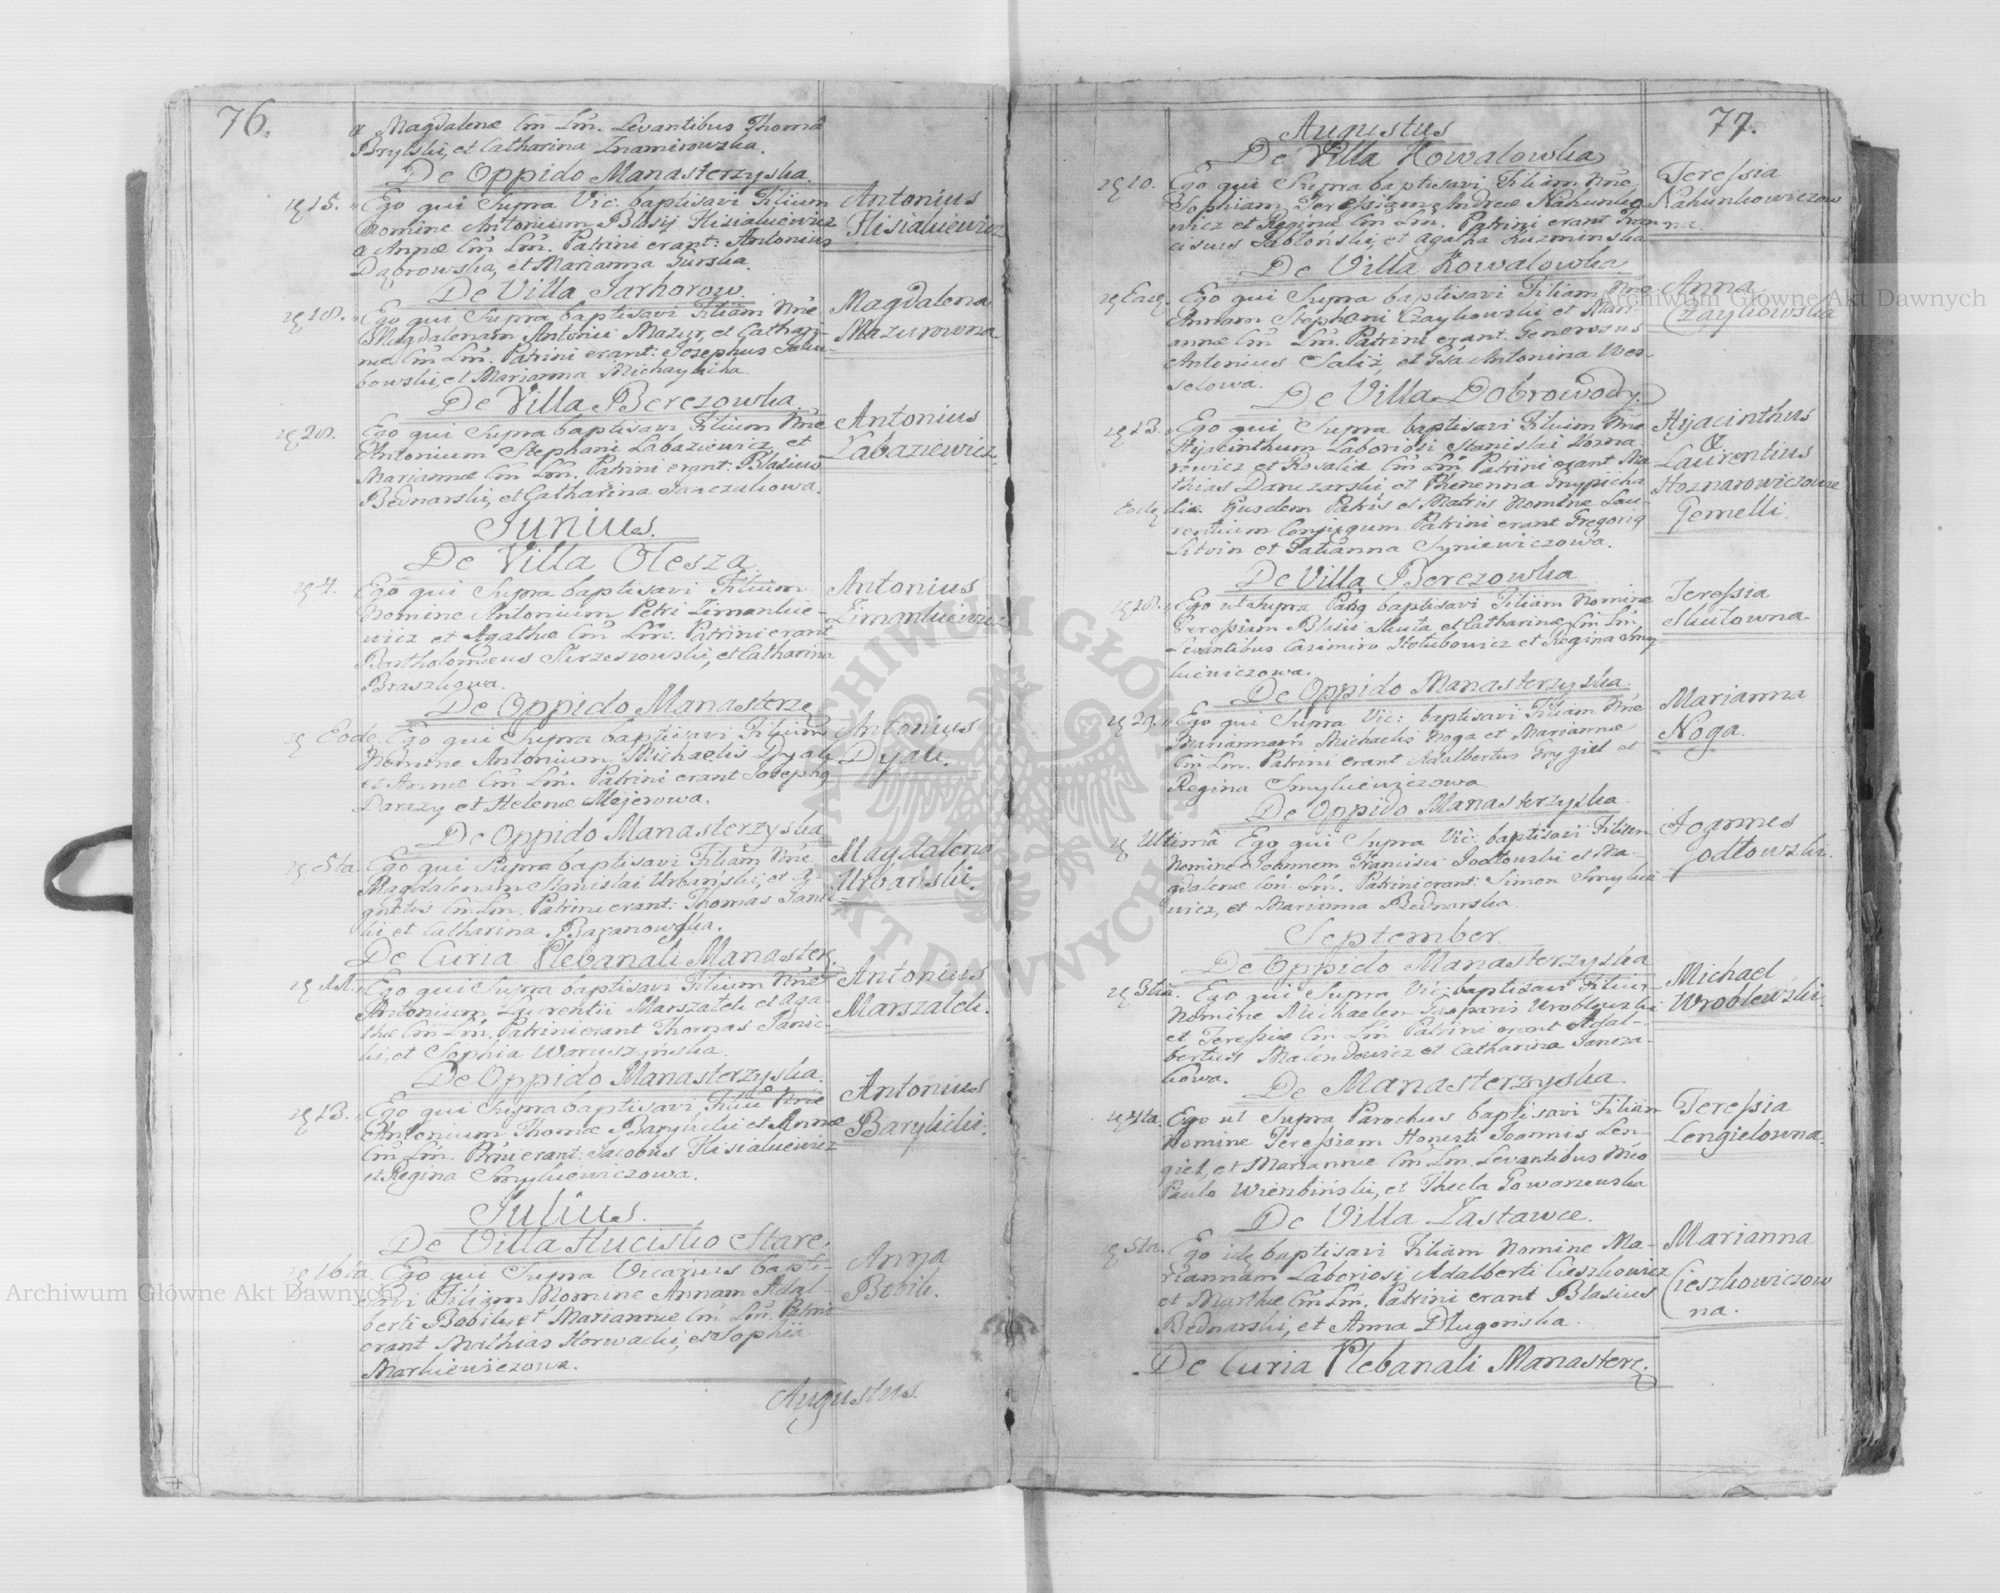 76.
et Magdalenæ Cm̃ Lm̃. Levantibus Thoma
Brylski, et Catharina Znamirowska.
De Oppido Manasterzyska.
15.
Ego qui Supra Vic: baptisavi Filium
Nomine Antonium Blasij Kisialuiewicz
et Annæ Cm̃ Lm̃. Patrini erant: Antonius
Dąbrowska, et Marianna Gurska.
Antonius
Kisialuiewicz
De Villa Jarhorow.
18.
Ego qui Supra baptisavi Filiam Nne
Magdalenam Antonii Mazur, et Cathari-
næ Cm̃ Lm̃. Patrini erant: Josephus Jaku-
bowski, et Marianna Michaylucha.
Magdalena
Mazurowna
De Villa Berezowka.
28.
Ego qui Supra baptisavi Filium Nne
Antonium Stephani Labaziewicz et
Mariannæ Cm̃ Lm̃. Patrini erant: Blasius
Bednarski, et Catharina Janczukowa.
Antonius
Labaziewicz
Junius.
De Villa Olesza
4.
Ego qui Supra baptisavi Filium
Nomine Antonium Petri Zimankie-
wicz et Agathæ Cm̃ Lm̃. Patrini erant
Bartholomæus Strzeszowski, et Catharina
Braszkowa.
Antonius
Zimankiewicz
De Oppido Manasterz
Eode.
Ego qui Supra baptisavi Filium
Nomine Antonium Michaelis Dyak
et Annæ Cm̃ Lm̃. Patrini erant Joseph9
Darazy et Helenæ Mejerowa.
Antonius
Dyak.
De Oppido Manasterzyska
5ta
Ego qui Supra baptisavi Filiam Nne
Magdalenam Stanislai Urbański, et A-
gnetis Cm̃ Lm̃. Patrini erant: Thomas Janic-
ki et Catharina Baranowska.
Magdalena
Urbański.
De Curia Plebanali Manaster.
11.
Ego qui Supra baptisavi Filium Nne
Antonium Laurentii Marszałek et Aga-
thæ Cm̃ Lm̃. Patrini erant Thomas Janic-
ki, et Sophia Waruszyńska.
Antonius
Marszałek.
De Oppido Manasterzyska.
13.
Ego qui Supra baptisavi Filiũ Nne
Antonium Thomæ Barylicki et Annæ
Cm̃ Lm̃. Ptrni erant: Jacobus Kisialuiewicz
et Regina Smykiewiczowa.
Antonius
Barylicki.
Julius.
De Villa Hucisko Stare.
16ta.
Ego qui Supra Vicarius bapti-
savi Filiam Nomine Annam Adal-
berti Bobik, et Mariannæ Cm̃ Lm̃. Patrini
erant Mathias Horwacki, et Sophia
Markiewiczowa.
Anna
Bobik.
Augustus.
77.
Augustus
De Villa Kowalowka
10.
Ego qui Supra baptisavi Filiam Nne
Sophiam Teressiam Andreæ Nahunko-
wicz et Reginæ Cm̃ Lm̃. Patrini erant Fran-
ciscus Jabłoński, et Agatha Kuzminska
Teressia
Nahunkowiczow
na.
De Villa Kowalowka
Ead.
Ego qui Supra baptisavi Filiam Nne
Annam Stephani Czaykowski et Mari-
annæ Cm̃ Lm̃. Patrini erant: Generosus
Antonius Saliz, et Gsa Antonina Wes-
selowa.
Anna
Czaykowska
De Villa Dobrowody.
13.
Ego qui Supra baptisavi Filium Nne
Hyacinthum Laboriosi Stanislai Kozna-
rewicz et Rosaliæ Cm̃ Lm̃ Patrini erant Ma-
thias Danczarski et Phenenna Gnypicha
Eod.
die. Ejusdem Patris et Matris Nomine Lau-
rentium Conjugum Patrini erant Gregorig
Litvin et Tatianna Syniewiczowa.
Hyacinthus
&
Laurentius
Koznarowiczowie
Gemelli.
De Villa Berezowka
18.
Ego ut Supra Pahq baptisavi Filiam Nomine
Teressiam Blasii Skuta et Catharinæ Cm̃ Lm̃
Levantibus Casimiro Hołubowicz et Regina Smy-
kiewiczowa.
Teressia
Skutowna
De Oppido Manasterzyska.
29.
Ego qui Supra Vic: baptisavi Filiam Nne
Mariannam Michaelis Noga et Mariannæ
Cm̃ Lm̃. Patrini erant Adalbertus Grygiel et
Regina Smykiewiczowa
Marianna
Noga.
De Oppido Manasterzyska
Ultimâ
Ego qui Supra Vic: baptisavi Filium
Nomine Joannem Francisci Jodłowski et Ma-
gdalenæ Cm̃ Lm̃. Patrini erant: Simon Smykie-
wicz, et Marianna Bednarska
Joannes
Jodłowski.
September.
De Oppido Manasterzyska
3tia.
Ego qui Supra Vic: baptisavi Filium
Nomine Michaelem Gasparis Wroblewski
et Teressiæ Cm̃ Lm̃ Patrini erant Adal-
bertus Malendowicz et Catharina Jancza-
kowa.
Michael
Wroblewski.
De Manasterzyska.
4ta.
Ego ut Supra Parochus baptisavi Filiam
Nomine Teressiam Honesti Joannis Len-
giel, et Mariannæ Cm̃ Lm̃ Levantibus Mco
Paulo Wierzbiński, et Thecla Gowarewska
Teressia
Lengielowna.
De Villa Zastawce.
5ta.
Ego idẽ baptisavi Filiam Nomine Ma-
riannam Laboriosi Adalberti Cieszkowicz
et Marthæ Cm̃ Lm̃. Patrini erant Blasius
Bednarski, et Anna Długonska.
Marianna
Cieszkowiczow
na.
De Curia Plebanali Manasterz.
Archiwum Główne Akt Dawnych
Archiwum Główne Akt Dawnych
ARCHIWUM GŁÓWNE AKT DAWNYCH